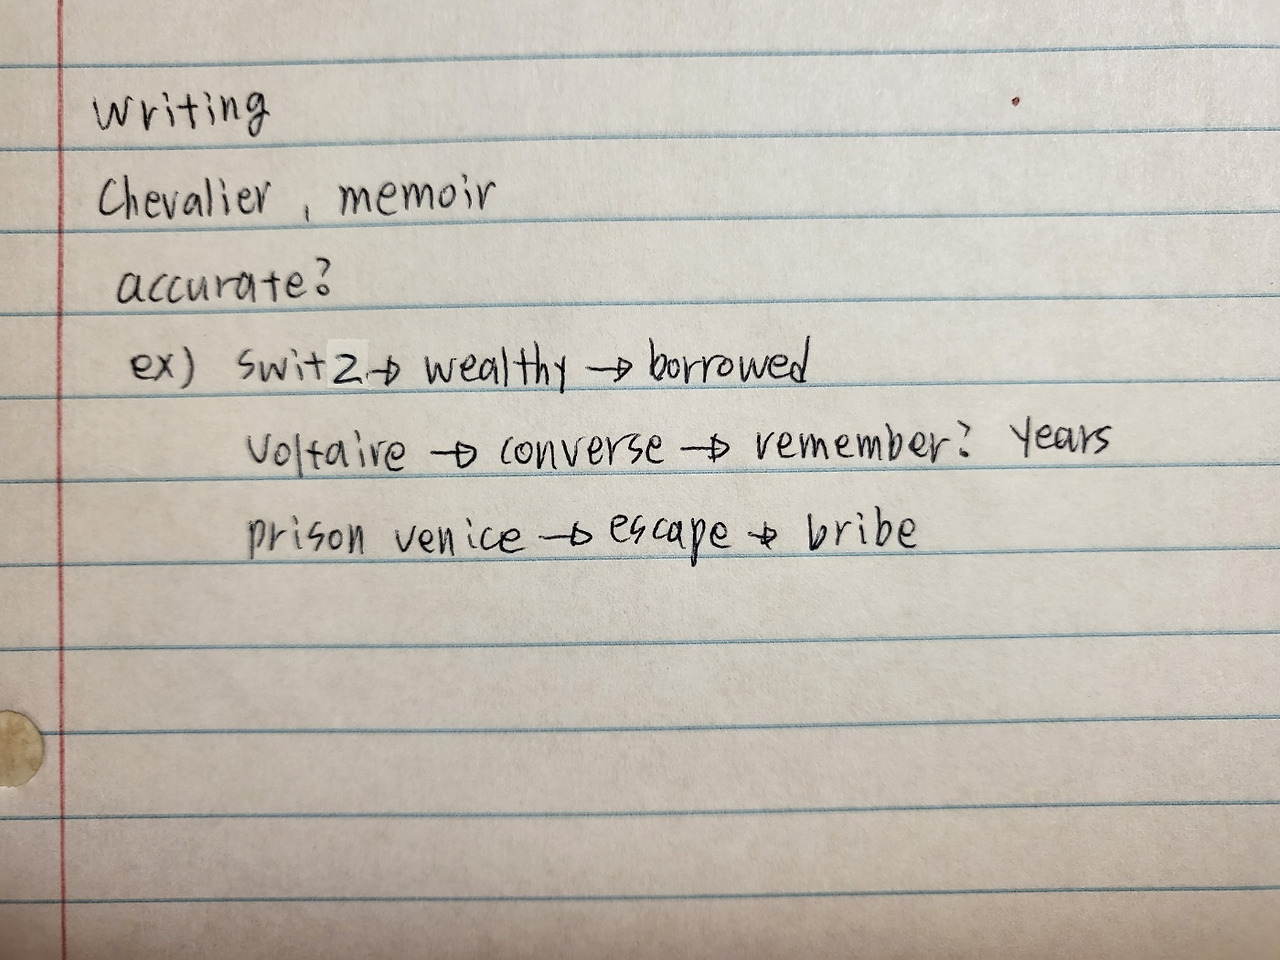 writing
Chevalier, memoir
accurate?
ex) switz → wealthy → borrowed
voltaire → converse → remember? years
prison venice → escape → bribe